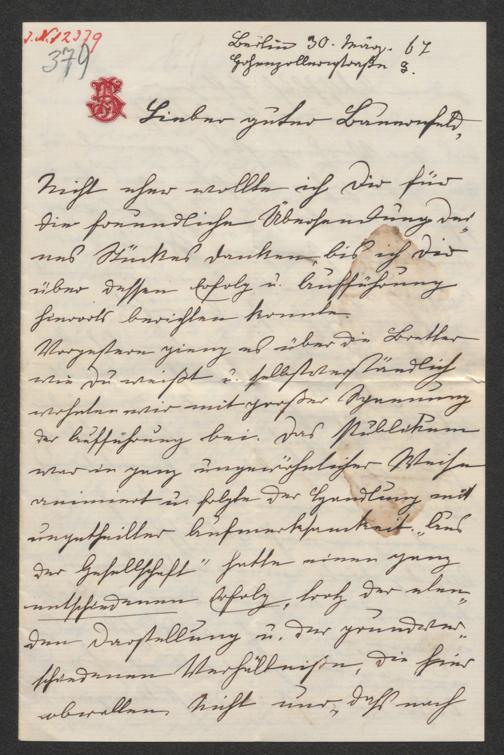 J.N.12379
379
Berlin 30. März. 67
Hohenzollernstraße 8.
Lieber guter Bauernfeld,
Nicht eher wollte ich Dir für
die freundliche Übersendung Dei¬
nes Stückes danken, bis ich Dir
über dessen Erfolg u. Aufführung
hierorts berichten konnte.
Vorgestern gieng es über die Bretter
wie Du weißt u. selbstverständlich
wohnten wir mit großer Spannung
der Aufführung bei. Das Publikum
war in ganz ungewöhnlicher Weise
animiert u. folgte der Handlung mit
ungetheilter Aufmerksamkeit. „Aus
der Gesellschaft" hatte einen ganz
entschiedenen Erfolg, trotz der elen¬
den Darstellung u. der grundver¬
schiedenen Verhältniße, die hier
obwalten. Nicht nur, daß nach